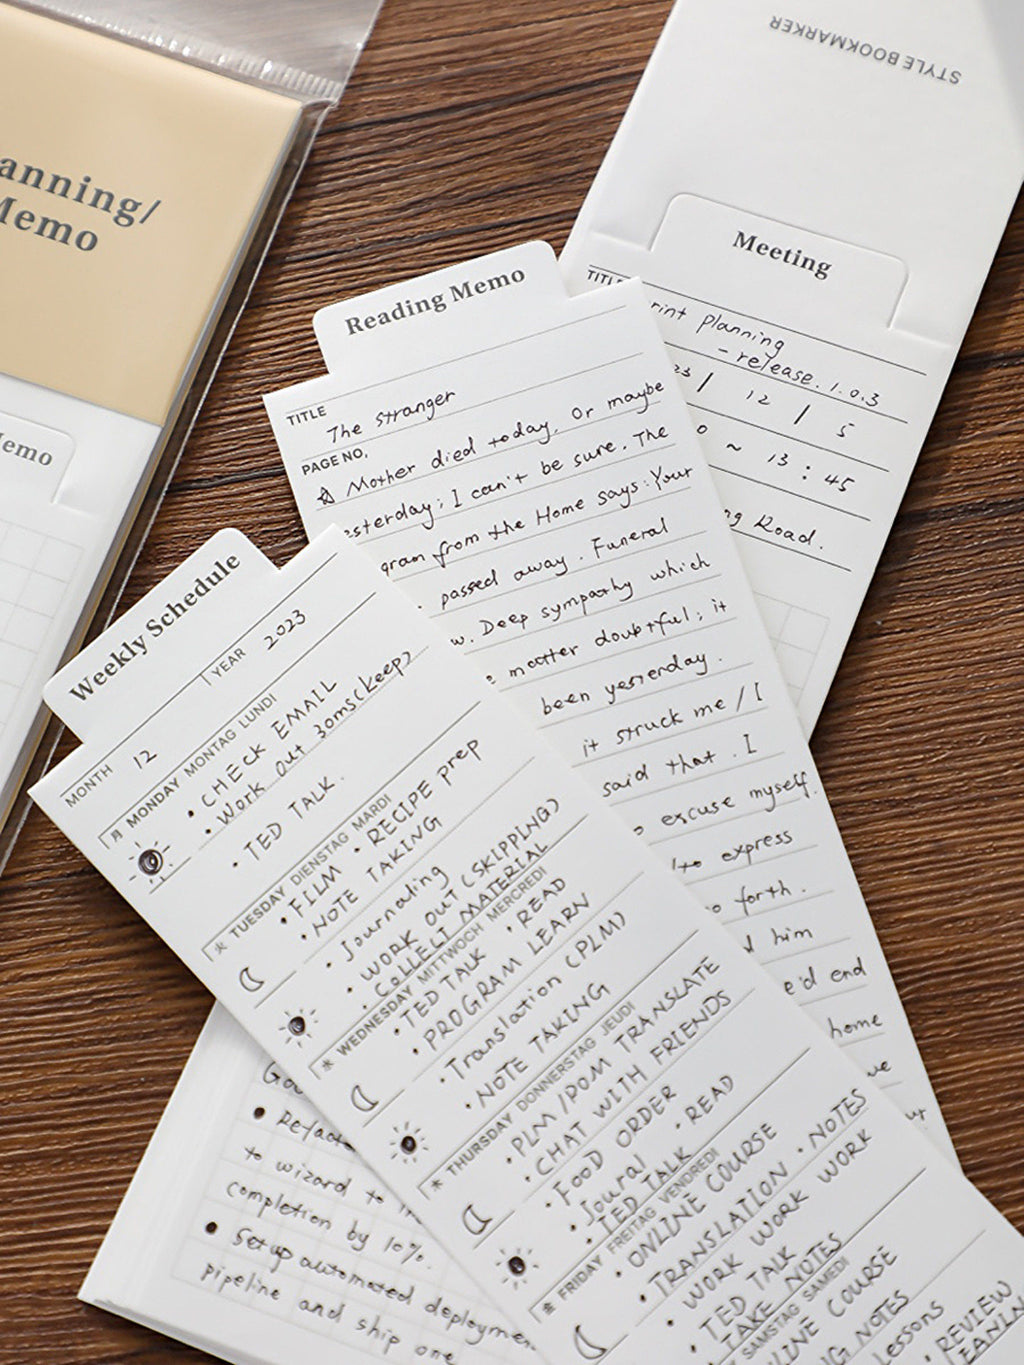 STYLE BOOKMARKER
Meeting
TITLE
print planning
- release. 1.0.3
23 / 12 / 5
0 ~ 13:45
ng Road.
anning/
Memo
Memo
Reading Memo
TITLE
The stranger
PAGE NO.
Mother died today. Or maybe
esterday; I can't be sure. The
gram from the Home says: Your
passed away. Funeral
w. Deep sympathy which
e matter doubtful; it
been yesterday.
it struck me / I
said that. I
o excuse myself.
to express
o forth.
d him
e'd end
home
ve
Weekly Schedule
MONTH 12 YEAR 2023
月 MONDAY MONTAG LUNDI
• CHECK EMAIL
• Work out 30ms(keep)
• TED TALK.
火 TUESDAY DIENSTAG MARDI
• FILM • RECIPE prep
• NOTE TAKING
• Journaling
• WORK OUT (SKIPPING)
• COLLECT MATERIAL
水 WEDNESDAY MITTWOCH MERCREDI
• TED TALK • READ
• PROGRAM LEARN
• Translation (PLM)
• NOTE TAKING
木 THURSDAY DONNERSTAG JEUDI
• PLM/POM TRANSLATE
• CHAT WITH FRIENDS
• FOOD ORDER
• Joural • READ
• TED TALK
金 FRIDAY FREITAG VENDREDI
• ONLINE COURSE
• TRANSLATION • NOTES
• WORK WORK WORK
• TED TALK
• TAKE NOTES
SAMSTAG SAMEDI
LINE COURSE
NG NOTES
lessons
• REVIEW
EANIN
Go
• Refact
to wizard to in
completion by 10%.
• Set up automated deploymen
pipeline and ship one